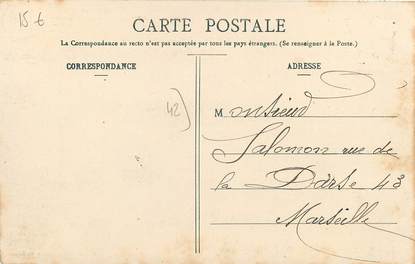 15 €
CARTE POSTALE
La Correspondance au recto n'est pas acceptée par tous les pays étrangers. (Se renseigner à la Poste.)
CORRESPONDANCE
ADRESSE
42
Monsieur
Salomon rue de
la Darse 43
Marseille